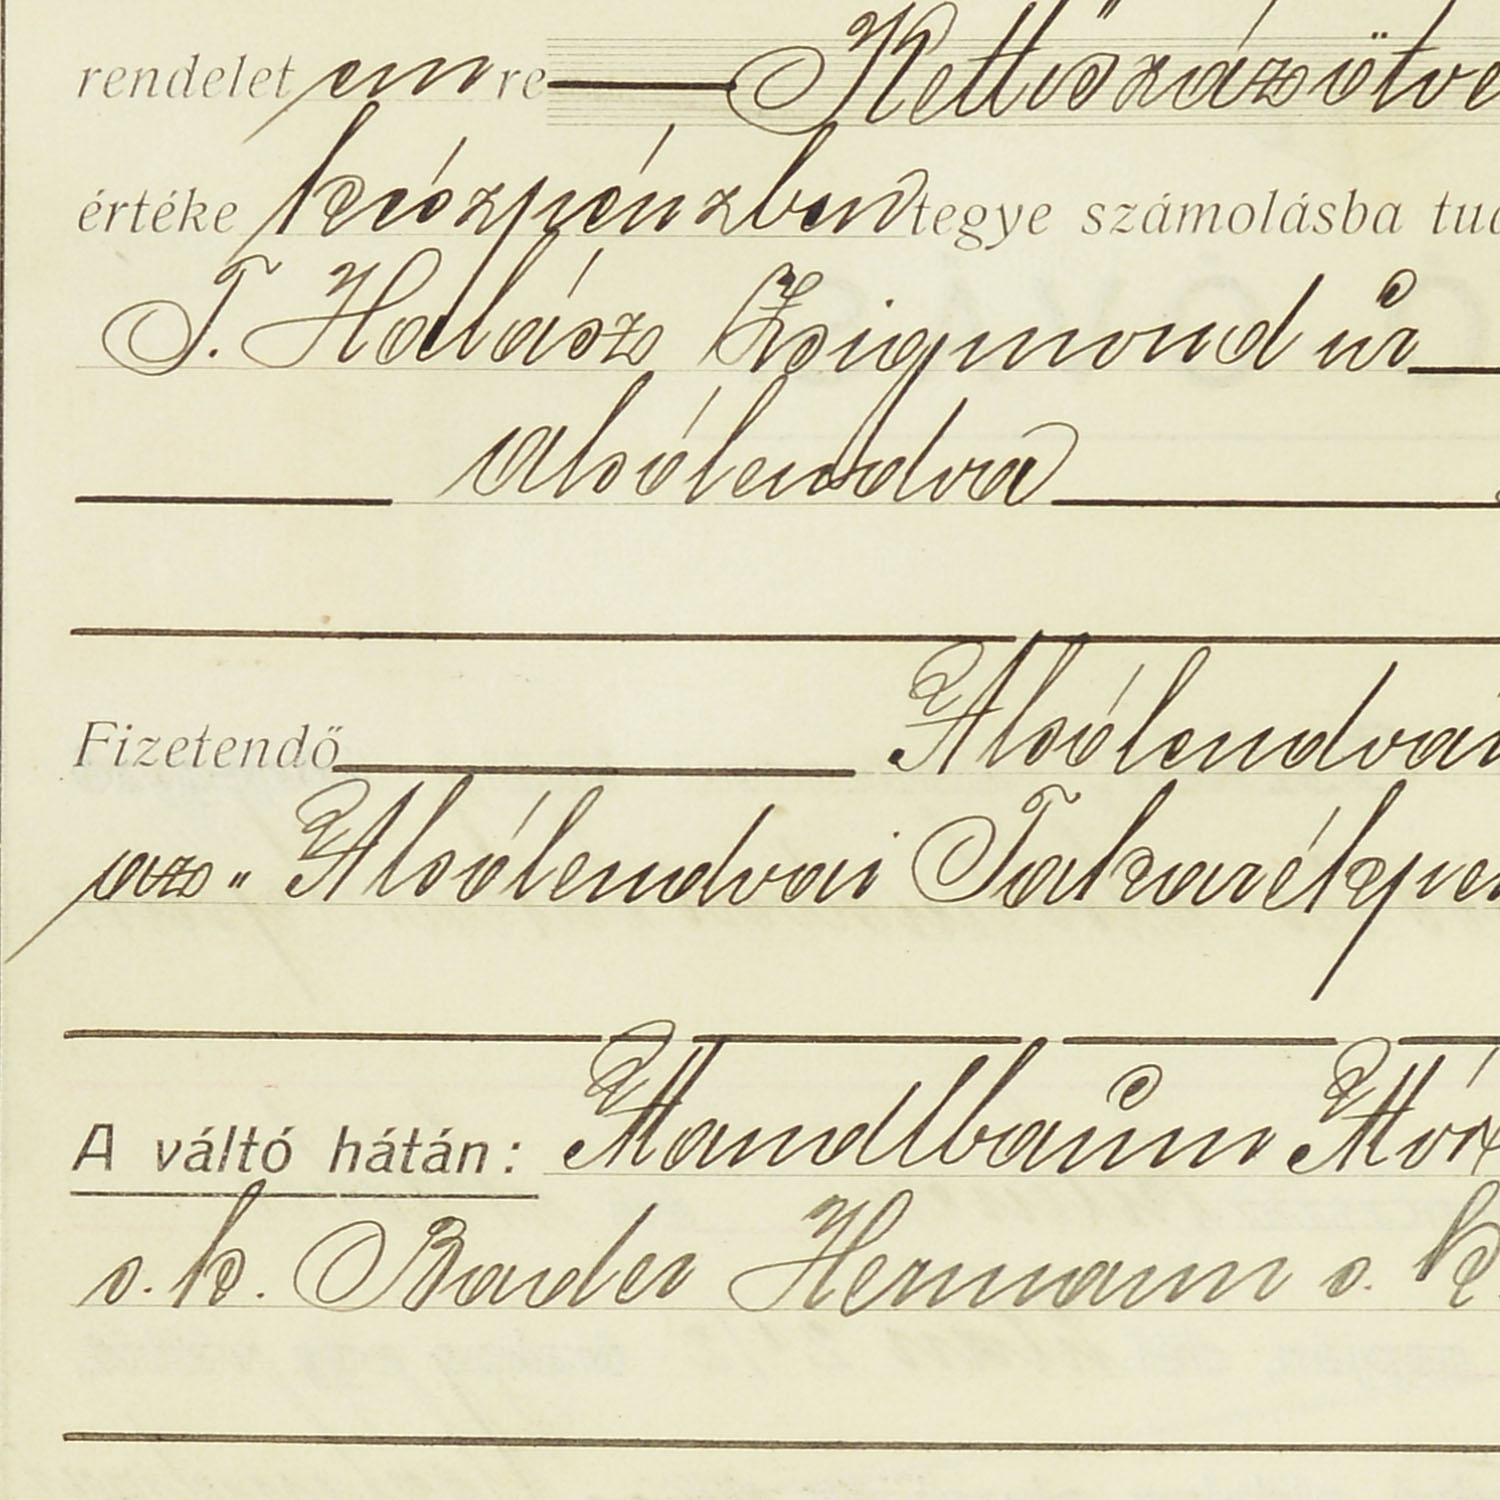 rendelet emre Kettőszázötve
értéke készpénzben tegye számolásba tud
T. Halász Zsigmond úr
Alsólendva
Fizetendő Alsólendvá
az „ Alsólendvai Takarékpén
A váltó hátán: Mandlbaum Mór
s. k. Bader Hermann s. k.